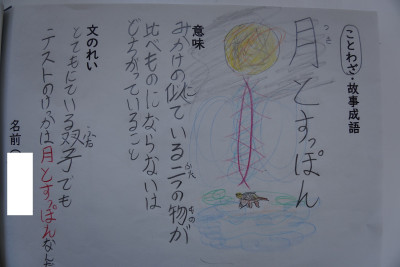 ことわざ・故事成語
月とすっぽん
つき
意味
みかけの似ている二つの物が
に
かた
もの
比べものにならないほ
どちがっていること
文のれい
とてもにている双子でも
ふたご
テストのけっかは月とすっぽんなんだ
名前